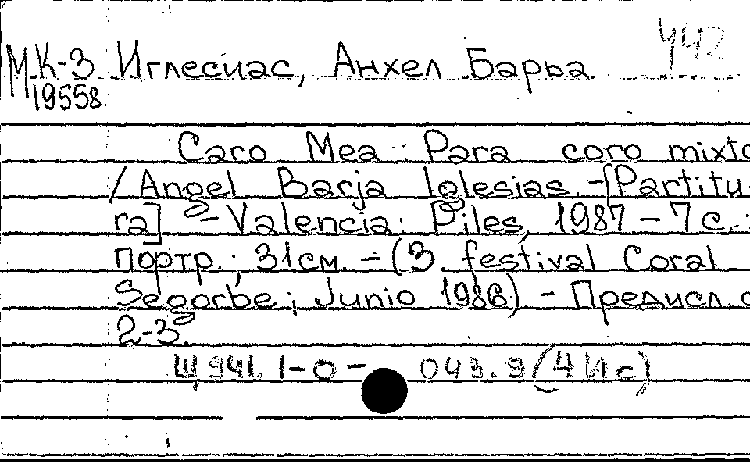 442
МК-3 Иглесиас, Анхел Барьа
19558
Caro Mea : Para coro mixto
/ Angel Barja Iglesias. - [Partitu
ra]. - Valencia : Piles, 1987 - 7 с. :
портр. ; 31 см. - (3. festival Coral
Segorbe ; Junio 1986) - Предисл. с
2-3.
Щ 941.1-0- 043.9(4Ис)